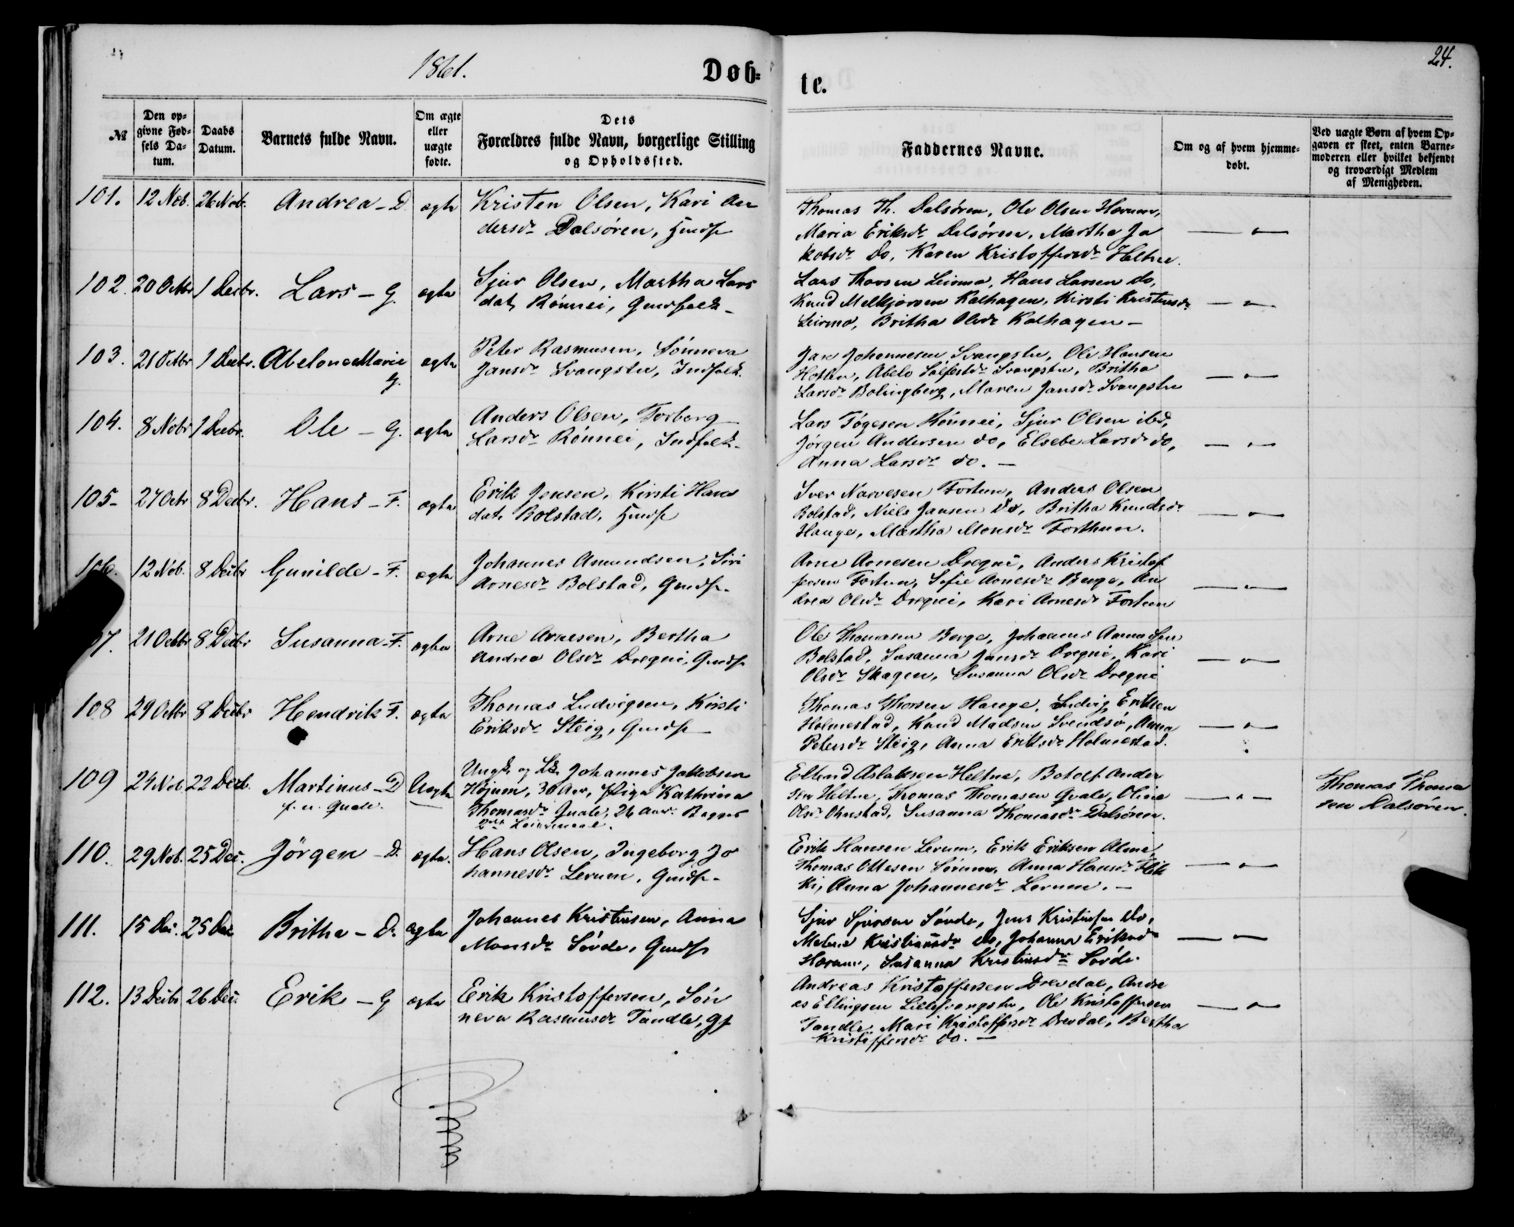 1861.
Døb-
te.
24.
№
Den op-
givne Fød-
sels Da-
tum.
Daabs
Datum.
Barnets fulde Navn.
Om ægte
eller
uægte
fødte.
Dets
Forældres fulde Navn, borgerlige Stilling
og Opholdssted.
Faddernes Navne.
Om og af hvem hjemme-
døbt.
Ved uægte Børn af hvem Op-
gaven er skeet, enten Barne-
moderen eller hvilket bekjendt
og troværdigt Medlem
af Menigheden.
101. 12 Nov. 26 Nov. Andrea - D ægte
Kristen Olsen, Kari An
dersdr Dalsören, Huusf
Thomas Th. Dalsören, Ole Olsen Havum,
Maria Eriksdr Dalsören, Martha Ja
kobsdr do, Karen Kristoffersdr Heltne
102. 20 Octbr 1 Decbr. Lars - G. ægte
Sjur Olsen, Martha Lars
dat. Rönnei, Gmdfolk
Lars Thorsen Leirmo, Hans Larsen do,
Knud Melkjorsen Kalhagen, Kirsti Kristensdr
Leirmo, Britha Olsdr Kalhagen
103. 21 Octbr 1 Decbr. Abelone Marie
G. ægte
Peter Rasmusen, Sönneva
Jansdr Svangstu, Indfolk
Jan Johannesen Svangstu, Ole Hansen
Larsdr Bolingberg, Maren Jansdr Svangstu
104. 8 Novbr 1 Decbr. Ole - G. ægte
Anders Olsen, Torborg
Larsdr Rönnei, Indfolk
Lars Tögesen Rönnei, Sjur Olsen ibd,
Jörgen Andersen do, Elsebe Larsdr do,
Anna Larsdr do.
105 27 Octr 8 Decbr. Hans - F. ægte
Erik Jensen, Kirsti Hans
dat. Bolstad, Huusf
Iver Narvesen Fortun, Anders Olsen
Bolstad, Niels Jansen do, Britha Knudsdr
Hauge, Martha Monsdr Forthun.
106. 12 Nov. 8 Decbr Gunilde - F. ægte
Johannes Amundsen, Siri
Arnesdr Bolstad, Gmdf
Arne Arnesen Dregni, Anders Kristof
fersen Fortun, Sofie Arnesdr Berge, An
drea Olsdr Dregni, Kari Arnesdr Fortun
7. 21 Octbr 8 Decbr Susanna - F. ægte
Arne Arnesen, Bertha
Andrea Olsdr Dregni, Gmdf
Ole Thomasen Berge, Johannes Amundsen
Bolstad, Susanna Jansdr Dregni, Kari
Olsdr Skagen, Susanna Olsdr Dregni
108 29 Octbr 8 Decbr Hendrik F. ægte
Thomas Ludvigsen, Kirsti
Eriksdr Steig, Gmdf
Thomas Thorsen Hauge, Ludvig Eriksen
Holmestad, Knud Madsen Svensö, Anna
Petersdr Steig, Anna Eriksdr Holmestad.
109 24 Nov 22 Decb. Martinus - D Uægte
f. u. Qvale.
Ungk. og Johannes Jakobsen
Höjum, 30 Aar, Pige Kathrina
Thomasdr Qvale, 26 Aar. Begges
2det Leiermaal.
Ellend Aslaksen Heltne, Botolf Ander
sen Heltne, Thomas Thomasen Qvale, Olina
Olsdr Ornstad, Susanna Thomasdr Dalsören.
Thomas Thoma
sen Dalsören.
110. 29 Nov. 25 Dec. Jörgen - D. ægte
Hans Olsen, Ingeborg Jo
hannesdr Lerum, Gmdf
Erik Hansen Lerum, Erik Eriksen Alme,
Thomas Ottesen Sörum, Anna Hansdr Flik
ki, Anna Johannesdr Lerum.
111. 15 Dec. 25 Dec Britha - D. ægte
Johannes Kristensen, Anna
Monsdr Sövde, Gmdf
Sjur Sjursen Sövde, Jens Kristensen do,
Malene Kristensdr do, Johanna Eriksdr
Havum, Susanna Kristensdr Sövde
112. 13 Decbr 26 Dec Erik - G ægte
Erik Kristoffersen, Sön
neva Rasmusdr Tandle, Gf
Andreas Kristoffersen Drevdal, Andre
as Ellingsen Lillesvangstu, Ole Kristoffersen
Tandle, Mari Kristoffersdr Drevdal, Bertha
Kristoffersdr do.